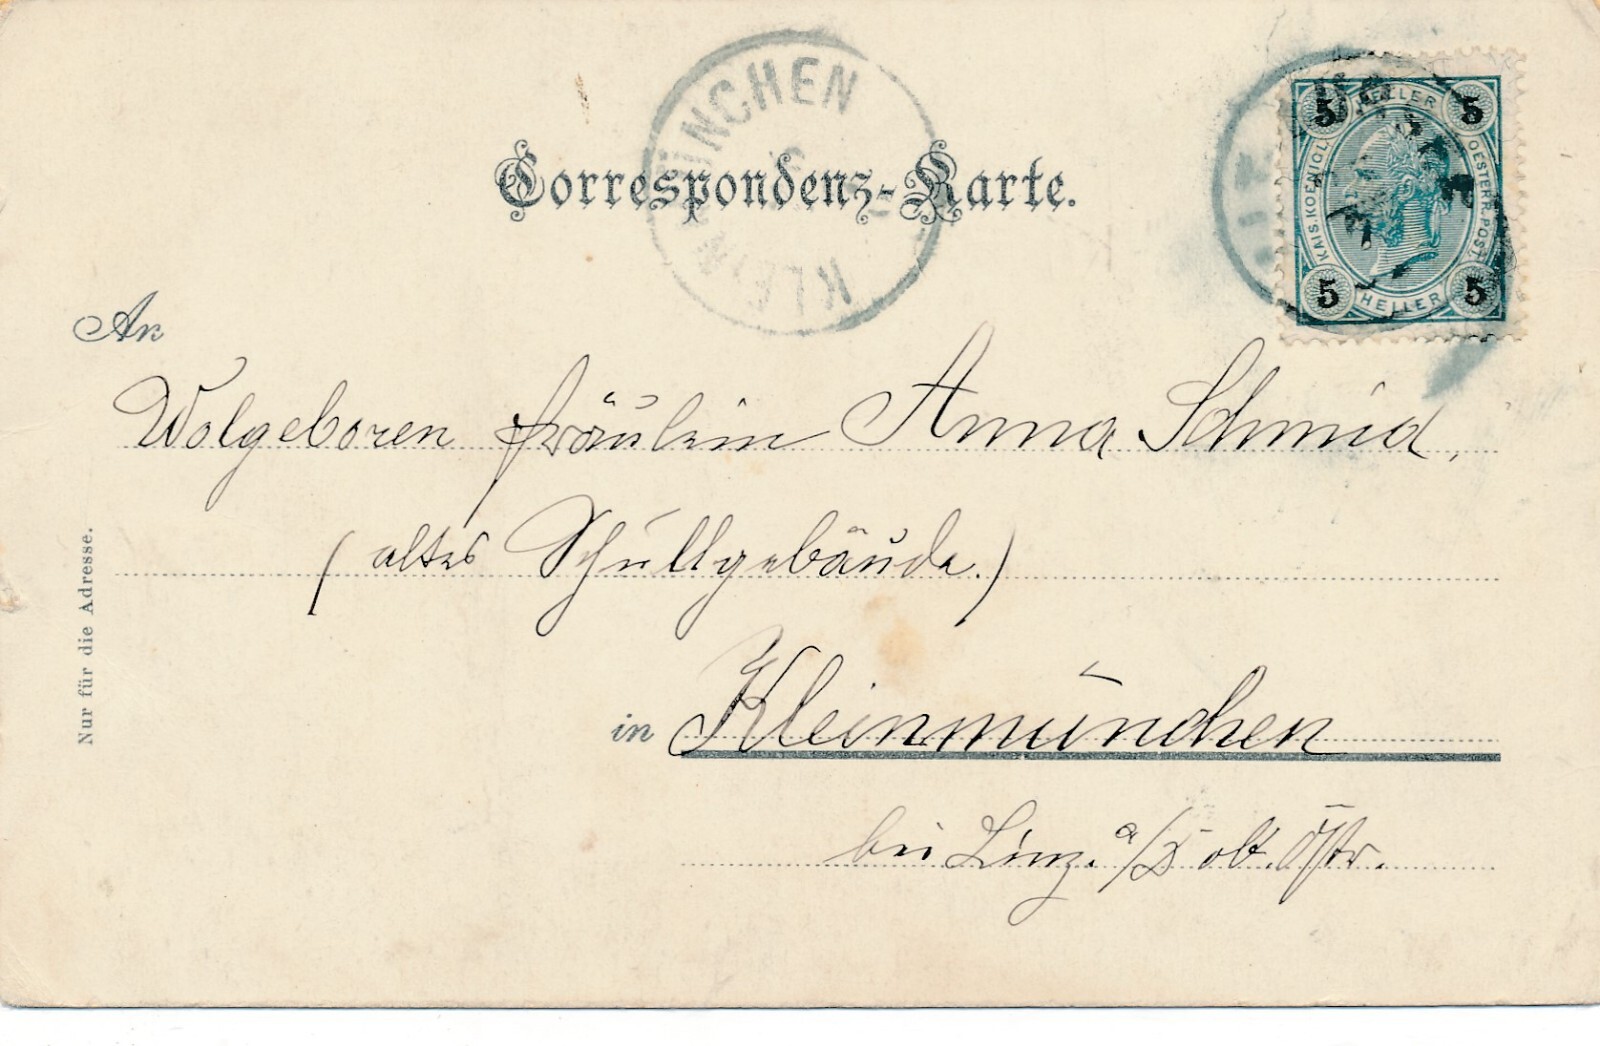 KLEINMÜNCHEN
Correspondenz-Karte.
5 HELLER 5
KAIS. KOENIGL. OESTERR. POST.
5 HELLER 5
An
Wolgeboren Fräulein Anna Schmid,
(altes Schullgebäude.)
in Kleinmünchen
bei Linz. a/D ob. Östr.
Nur für die Adresse.